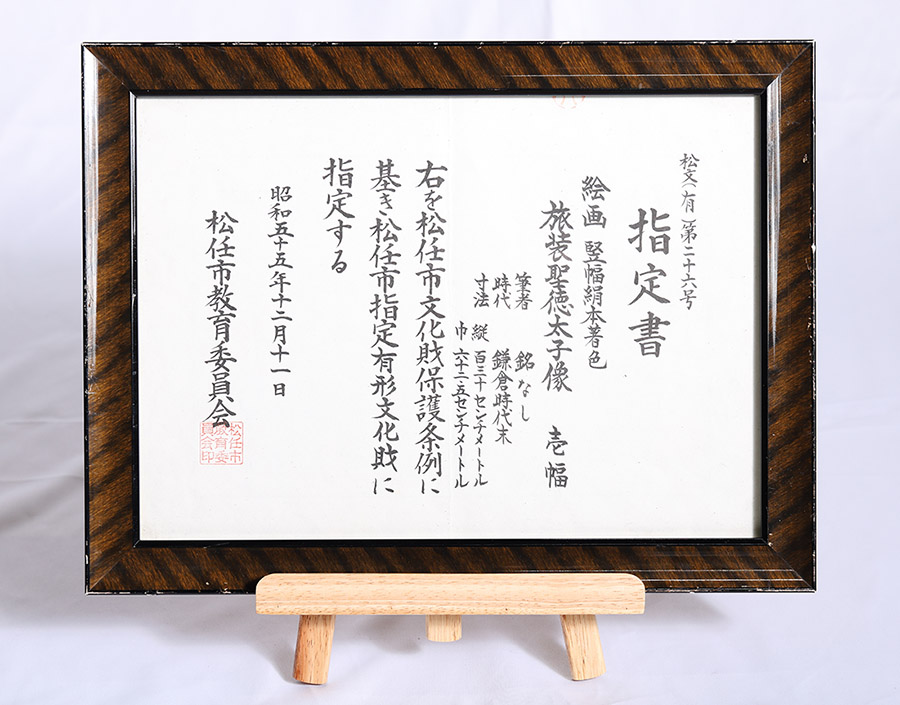 松文(有)第二十六号
指定書
絵画 竪幅絹本著色
旅装聖徳太子像 壱幅
筆者 銘なし
時代 鎌倉時代末
寸法 縦 百三十センチメートル
巾 六十二・五センチメートル
右を松任市文化財保護条例に
基き松任市指定有形文化財に
指定する
昭和五十五年十二月十一日
松任市教育委員会
松任市
教育委
員会印